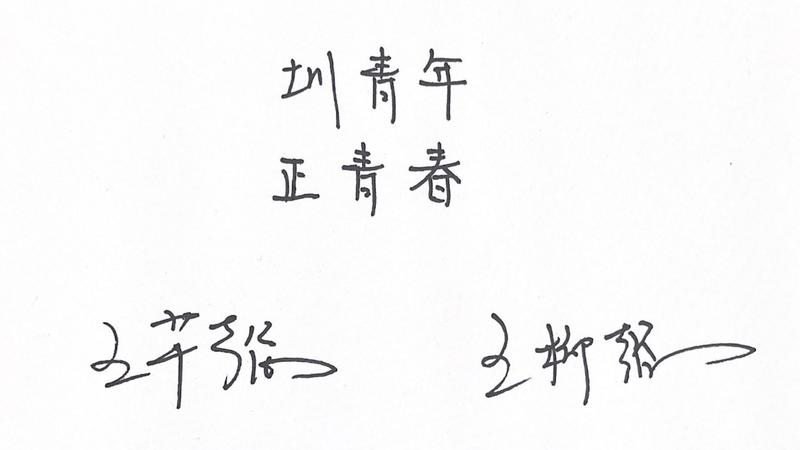 圳青年
正青春
王芊懿 王柳懿